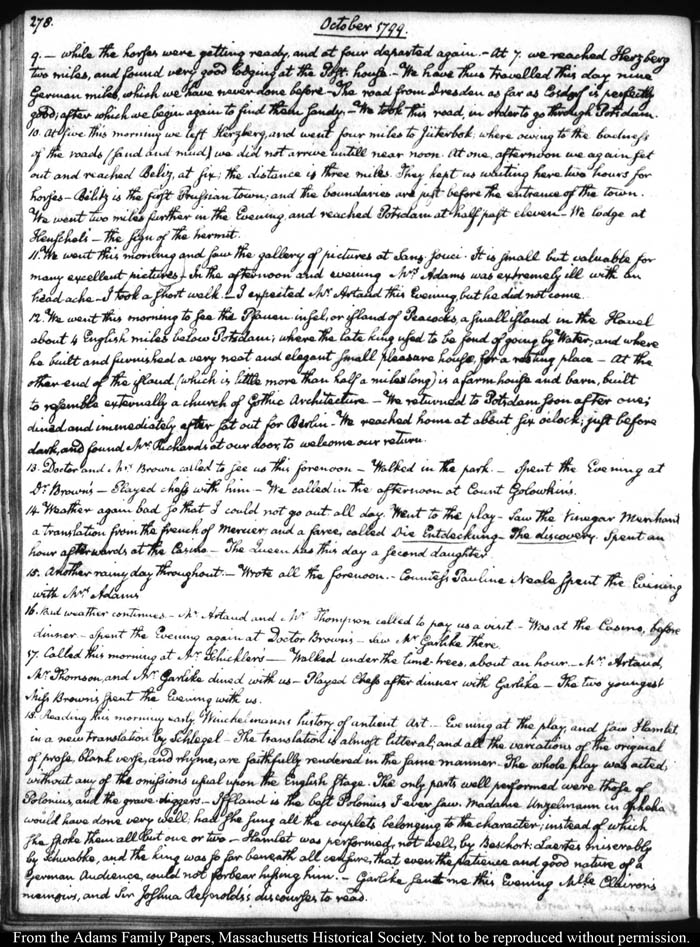 278.
October 1799.
9. — while the horses were getting ready, and at four departed again. - At 7. we reached Herzberg
two miles, and found very good lodging at the Post-house. - We have thus travelled this day nine
German miles, which we have never done before - The road from Dresden as far as is perfectly
good; after which we begin again to find them sandy. - We took this road, in order to go through Potsdam.
10. At five this morning we left Herzberg, and went four miles to Jüterbok, where owing to the badness
of the roads (sand and mud) we did not arrive untill near noon. At one, afternoon we again set
out and reached Belitz, at six; the distance is three miles. They kept us waiting here two hours for
horses - Belitz is the first Prussian town, and the boundaries are just before the entrance of the town.
We went two miles further in the Evening, and reached Potsdam at half past eleven - We lodge at
- the sign of the hermit.
11. We went this morning and saw the gallery of pictures at Sans-Souci. It is small but valuable for
many excellent pictures. In the afternoon and evening Mrs. Adams was extremely ill with an
head ache - I took a short walk. - I expected Mr. Artaud this Evening, but he did not come.
12. We went this morning to see the Pfauen insel, or island of Peacocks, a small island in the Havel
about 4 English miles below Potsdam; where the late king used to be fond of going by Water, and where
he built and furnished a very neat and elegant small pleasure house, for a resting place - At the
other end of the island, (which is little more than half a mile long) is a farm house and barn, built
to resemble externally a church of Gothic Architecture - We returned to Potsdam soon after one;
dined and immediately after set out for Berlin - We reached home at about six o'clock; just before
dark, and found Mr. Richards at our door, to welcome our return.
13. Doctor and Mrs. Brown called to see us this forenoon - Walked in the park. - Spent the Evening at
Dr. Brown's - Played chess with him - We called in the afternoon at Count Golowkin's.
14. Weather again bad so that I could not go out all day. Went to the play - Saw the Vinegar Merchant
a translation from the french of Mercier, and a farce, called Die Entdeckung - The discovery. Spent an
hour afterwards at the Casino - The Queen has this day a second daughter
15. Another rainy day throughout. - Wrote all the forenoon. - Countess Pauline Neale spent the Evening
with Mrs. Adams
16. Bad weather continues - Mr. Artaud and Mr. Thompson called to pay us a visit - Was at the Casino, before
dinner - Spent the Evening again at Doctor Brown's - Saw Mr. Garlike there.
17. Called this morning at Mr. Schickler's - Walked under the lime-trees, about an hour. - Mr. Artaud,
Mr. Thomson, and Mr. Garlike dined with us - Played Chess after dinner with Garlike - The two youngest
Miss Brown's spent the Evening with us.
18. Reading this morning early Winckelmann's history of antient Art. - Evening at the play, and saw Hamlet
in a new translation by Schlegel - The translation is almost litteral, and all the variations of the original
of prose, blank verse, and rhyme, are faithfully rendered in the same manner. The whole play was acted,
without any of the omissions usual upon the English stage. The only parts well performed were those of
Polonius, and the grave-diggers - Iffland is the best Polonius I ever saw. Madame Unzelmann in Ophelia
would have done very well, had she sung all the couplets belonging to the character; instead of which
she spoke them all but one or two - Hamlet was performed, not well, by Beschort; Laertes miserably
by Schwabke, and the king was so far beneath all censure, that even the patience and good nature of a
German Audience, could not forbear hissing him. - Garlike sent me this Evening Mlle. Clairon's
memoirs, and Sir Joshua Reynolds's discourses to read.
From the Adams Family Papers, Massachusetts Historical Society. Not to be reproduced without permission.